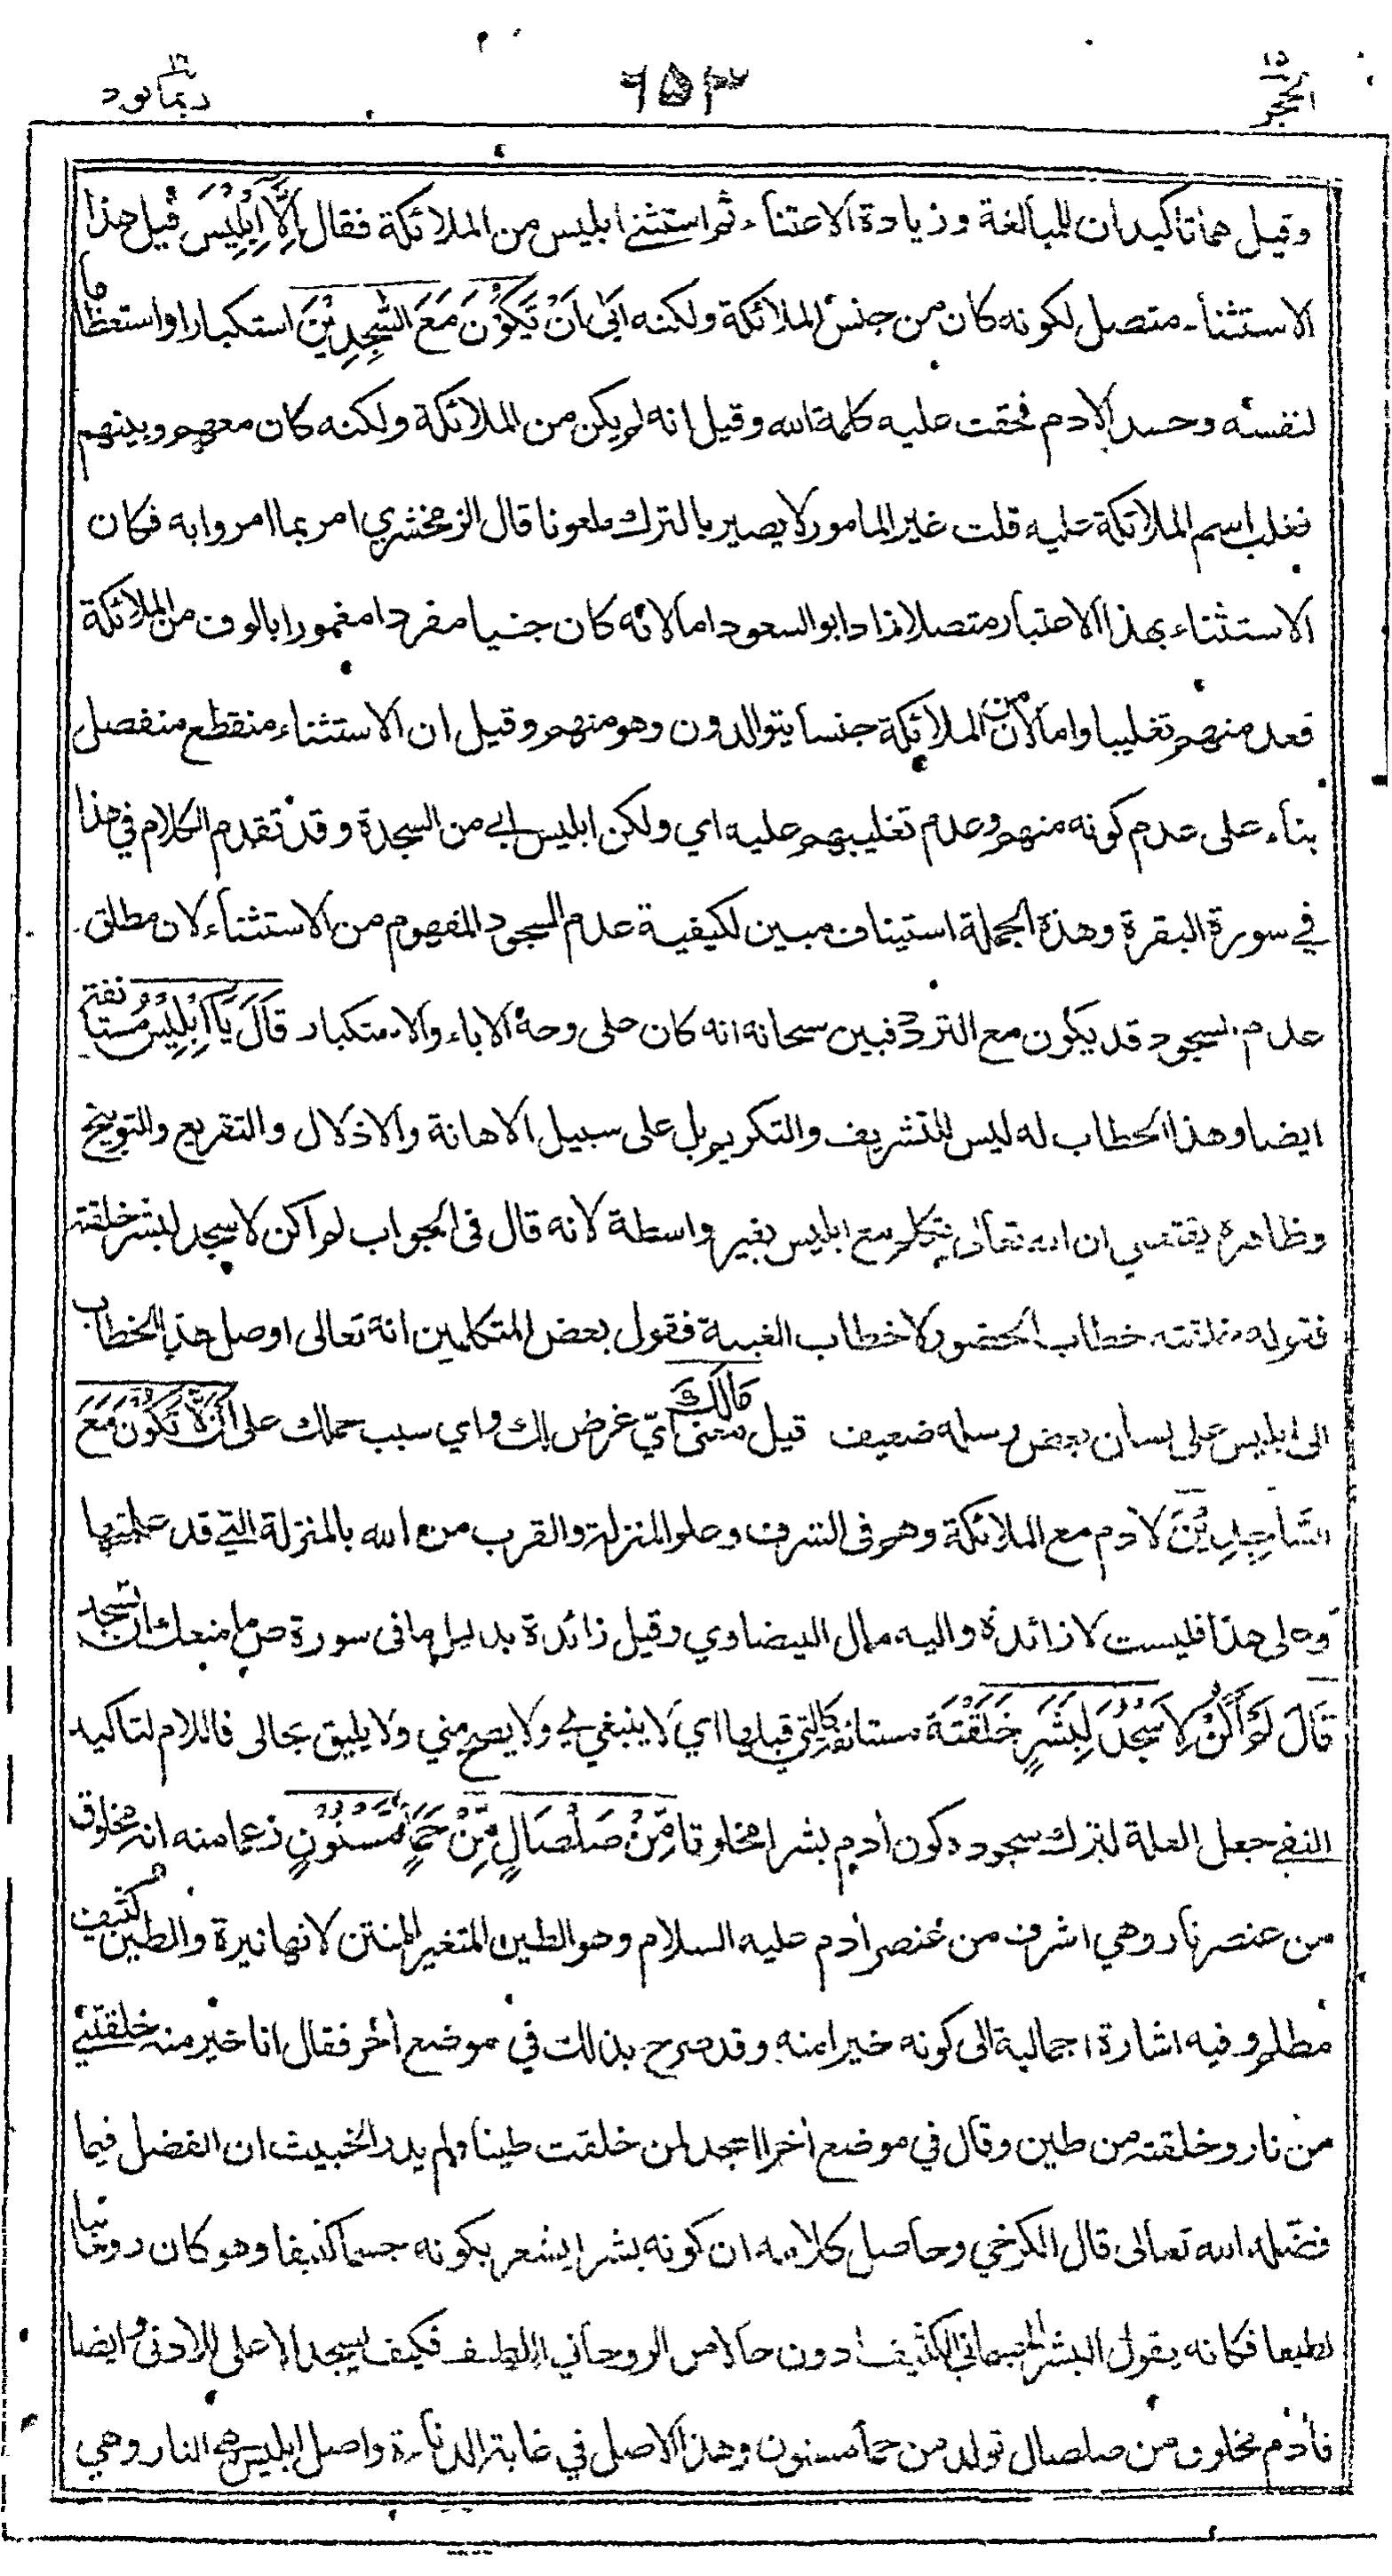 الحجر ١٥
٦٥٣
ربما يود ١٤
وقيل هما تاكيدان للمبالغة وزيادة الاعتناء ثم استثنى ابليس من الملائكة فقال اِلَّا اِبْلِيْسَ قيل هذا
الاستثناء متصل لكونه كان من جنس الملائكة ولكنه اَبٰى اَنْ يَّكُوْنَ مَعَ السّٰجِدِيْنَ استكبارا واستعظاما
لنفسه وحسدا لادم فحقت عليه كلمة الله وقيل انه لم يكن من الملائكة ولكنه كان معهم وبينهم
فغلب اسم الملائكة عليه قلت غير المامور لا يصير بالترك ملعونا قال الزمخشري امر بما امروا به فكان
الاستثناء بهذا الاعتبار متصلا زاد ابو السعود اما لانه كان جنيا مفردا مغمورا بالوف من الملائكة
فعد منهم تغليبا واما لان من الملائكة جنسا يتوالدون وهو منهم وقيل ان الاستثناء منقطع منفصل
بناء على عدم كونه منهم وعدم تغليبهم عليه اي ولكن ابليس ابى من السجدة وقد تقدم الكلام في هذا
في سورة البقرة وهذه الجملة استيناف مبين لكيفية عدم السجود المفهوم من الاستثناء لان مطلق
عدم السجود قد يكون مع التردد فبين سبحانه انه كان على وجه الاباء والاستكبار قَالَ يَا اِبْلِيْسُ مستانفة
ايضا وهذا الخطاب له ليس للتشريف والتكريم بل على سبيل الاهانة والاذلال والتقريع والتوبيخ
وظاهره يقتضي ان الله تعالى يتكلم مع ابليس بغير واسطة لانه قال في الجواب لم اكن لاسجد لبشر خلقته
فقوله خلقته خطاب الحضور لا خطاب الغيبة فقول بعض المتكلمين انه تعالى اوصل هذا الخطاب
الى ابليس على لسان بعض رسله ضعيف قيل معنى مَالَكَ اَيّ غرض لك واي سبب حملك على اَلَّا تَكُوْنَ مَعَ
السَّاجِدِيْنَ لادم مع الملائكة وهم في الشرف وعلو المنزلة والقرب من الله بالمنزلة التي قد علمتها
وعلى هذا فليست لا زائدة واليه مال البيضاوي وقيل زائدة بدليل ما في سورة ص ما منعك ان تسجد
قَالَ لَمْ اَكُنْ لِاَسْجُدَ لِبَشَرٍ خَلَقْتَهٗ مستانفة كالتي قبلها اي لا ينبغي لي ولا يصح مني ولا يليق بحالى فاللام لتاكيد
النفي جعل العلة لترك سجوده كون أدم بشرا مخلوقا مِّنْ صَلْصَالٍ مِّنْ حَمَاٍ مَّسْنُوْنٍ زعما منه انه مخلوق
من عنصر نار وهي اشرف من عنصر أدم عليه السلام وهو الطين المتغير المنتن لانها نيرة والطين كثيف
مظلم وفيه اشارة اجمالية الى كونه خيرا منه وقد صرح بذلك في موضع أخر فقال انا خير منه خلقتني
من نار وخلقته من طين وقال في موضع أخر ااسجد لمن خلقت طينا ولم يدر الخبيث ان الفضل فيما
فضّله الله تعالى قال الكرخي وحاصل كلامه ان كونه بشرا يشعر بكونه جسما كثيفا وهو كان روحانيا
لطيفا فكانه يقول البشر الجسماني الكثيف ادون حالا من الروحاني اللطيف فكيف يسجد الاعلى للادنى وايضا
فأدم مخلوق من صلصال تولد من حمأ مسنون وهذا الاصل في غاية الدناءة واصل ابليس هي النار وهي